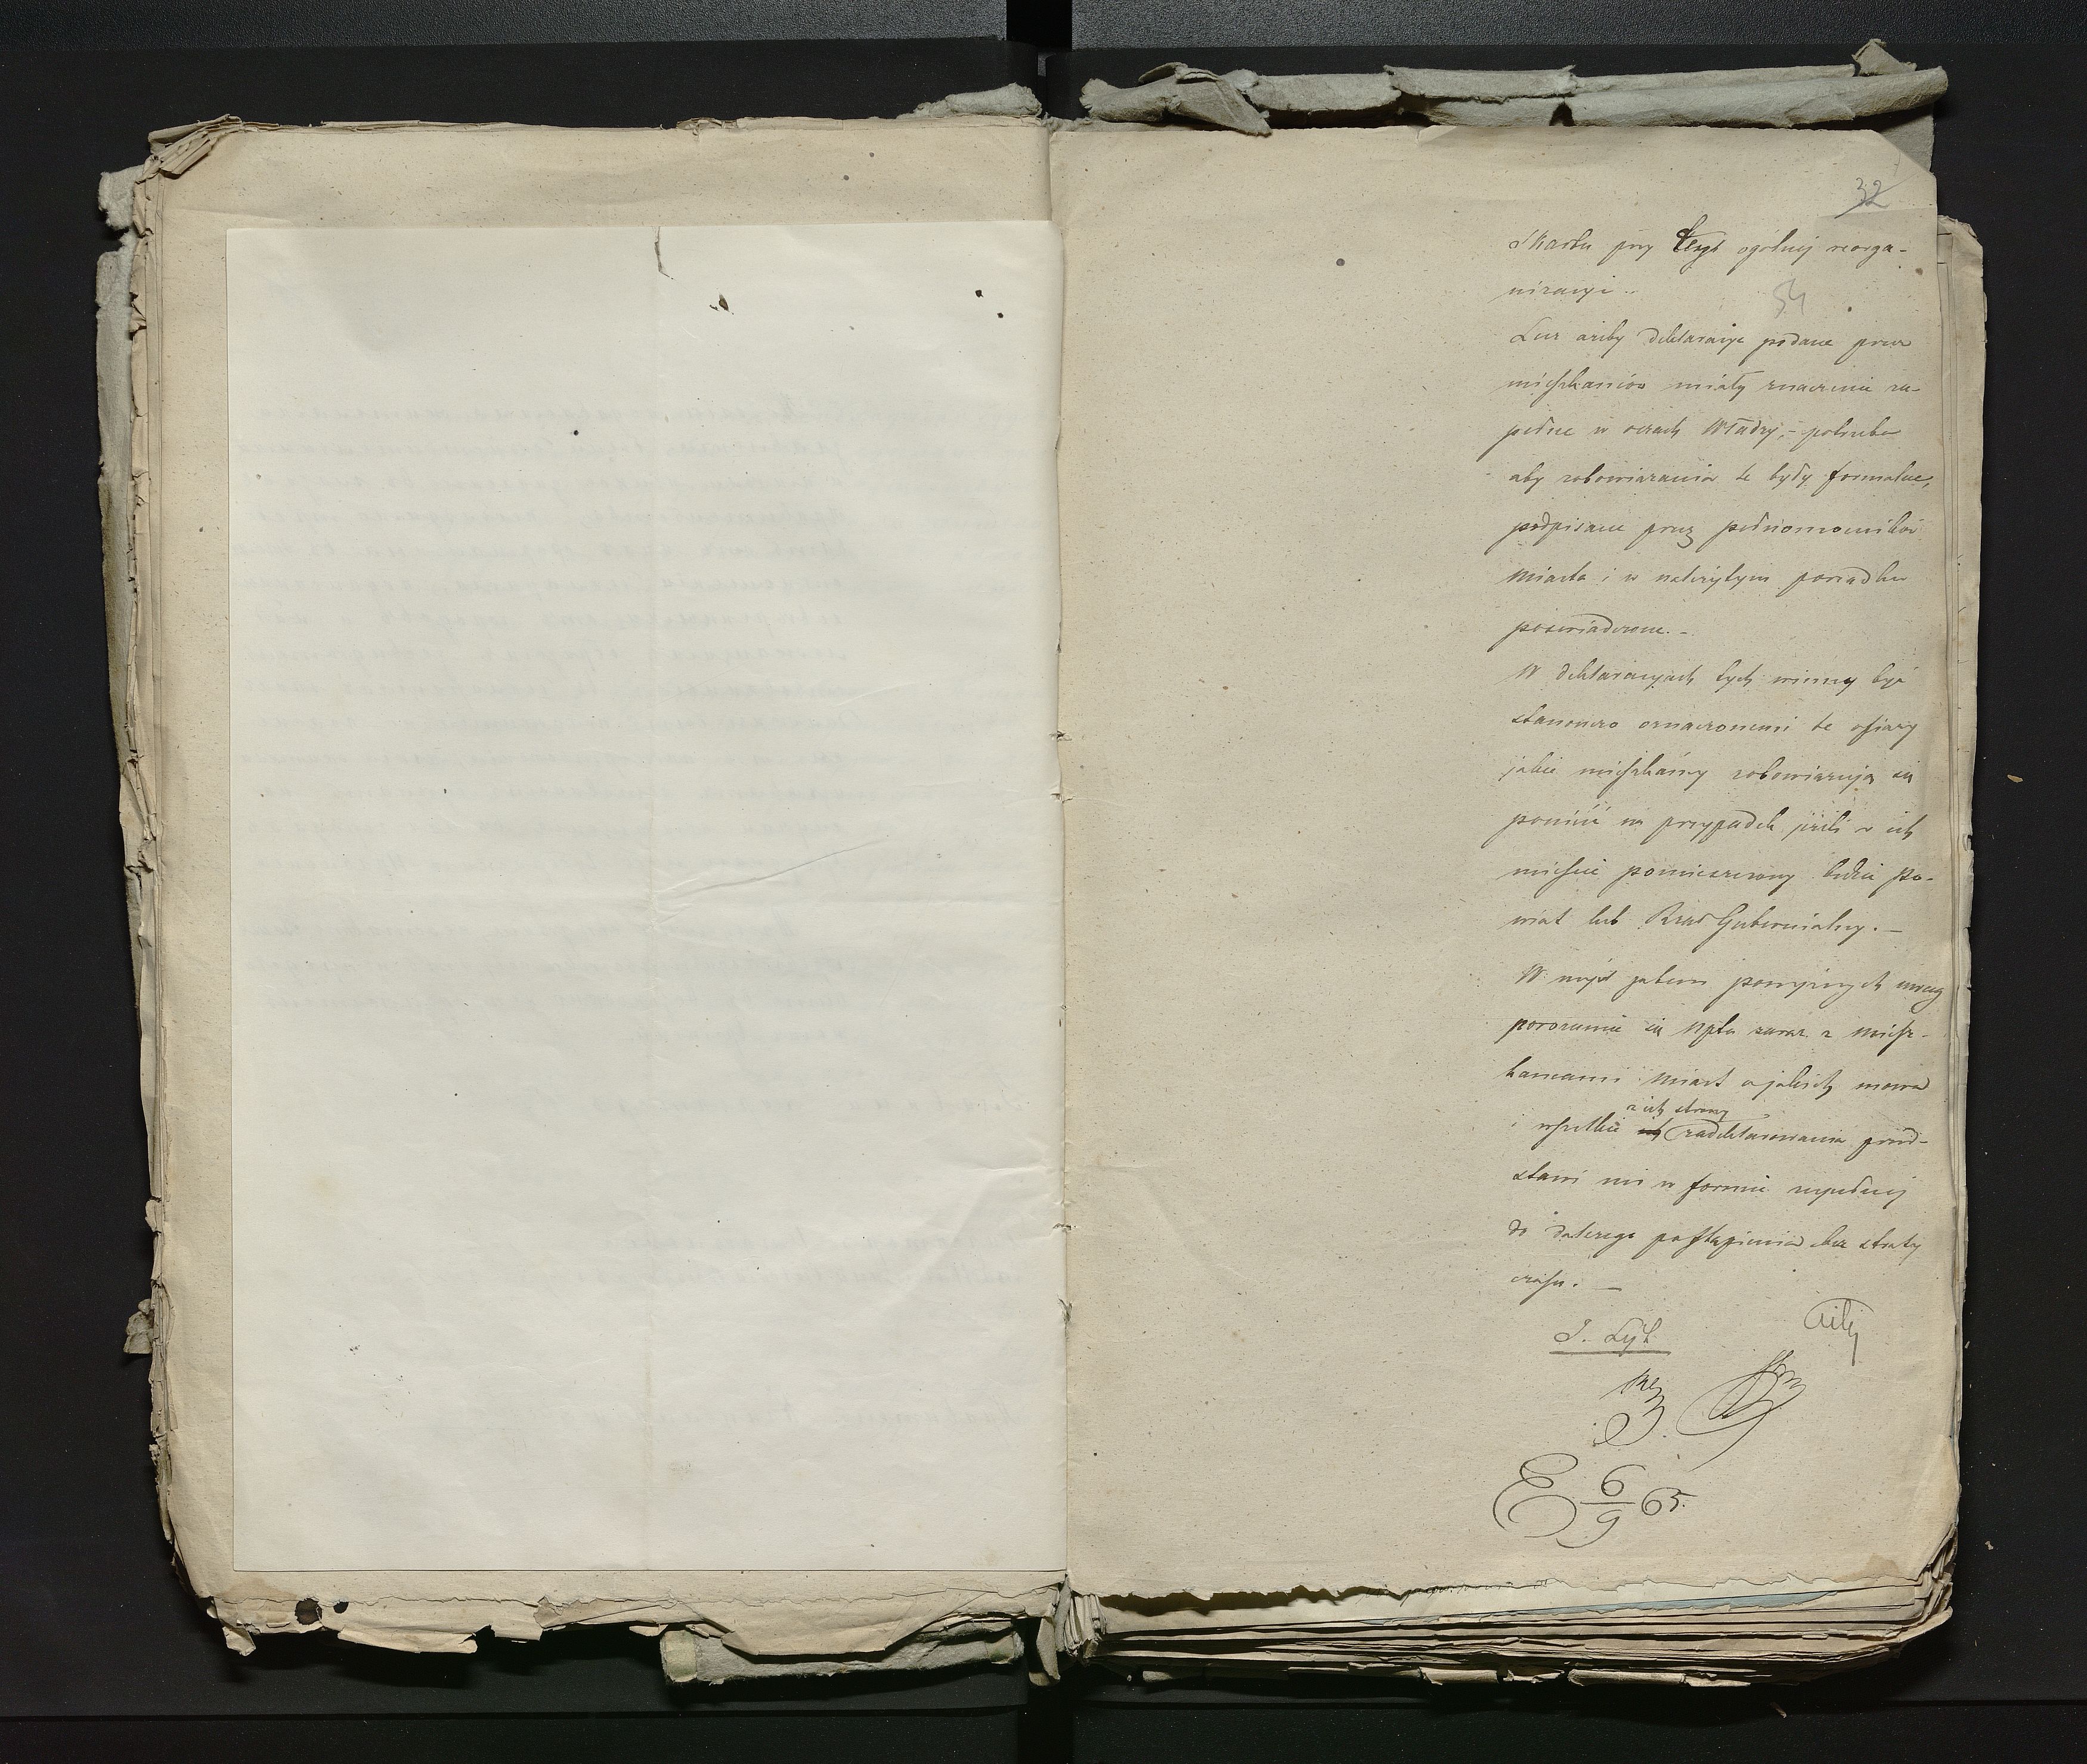 32
Skarbu przy tejże ogólnej reorga-
nizacyi.
54
Lecz ażeby deklaracye podane przez
mieszkańców miały znaczenie zu-
pełne w oczach Władzy, - potrzeba
aby zobowiązania te były formalne,
podpisane przez pełnomocników
miasta i w należytym porządku
poświadczone. -
W deklaracyach tych winny być
stanowczo oznaczonemi te ofiary
jakie mieszkańcy zobowiązują się
ponieść na przypadek jeżeli w ich
mieście pomieszczony będzie Po-
wiat lub Rząd Gubernialny. -
W myśl zatem powyższych uwag
porozumie się zaraz z miesz-
kańcami miast o jakich mowa
z ich strony
i wszelkie ich zadeklarowania przed-
stawi mi w formie zupełnej
do dalszego postąpienia bez straty
czasu. -
E 6/9 65.